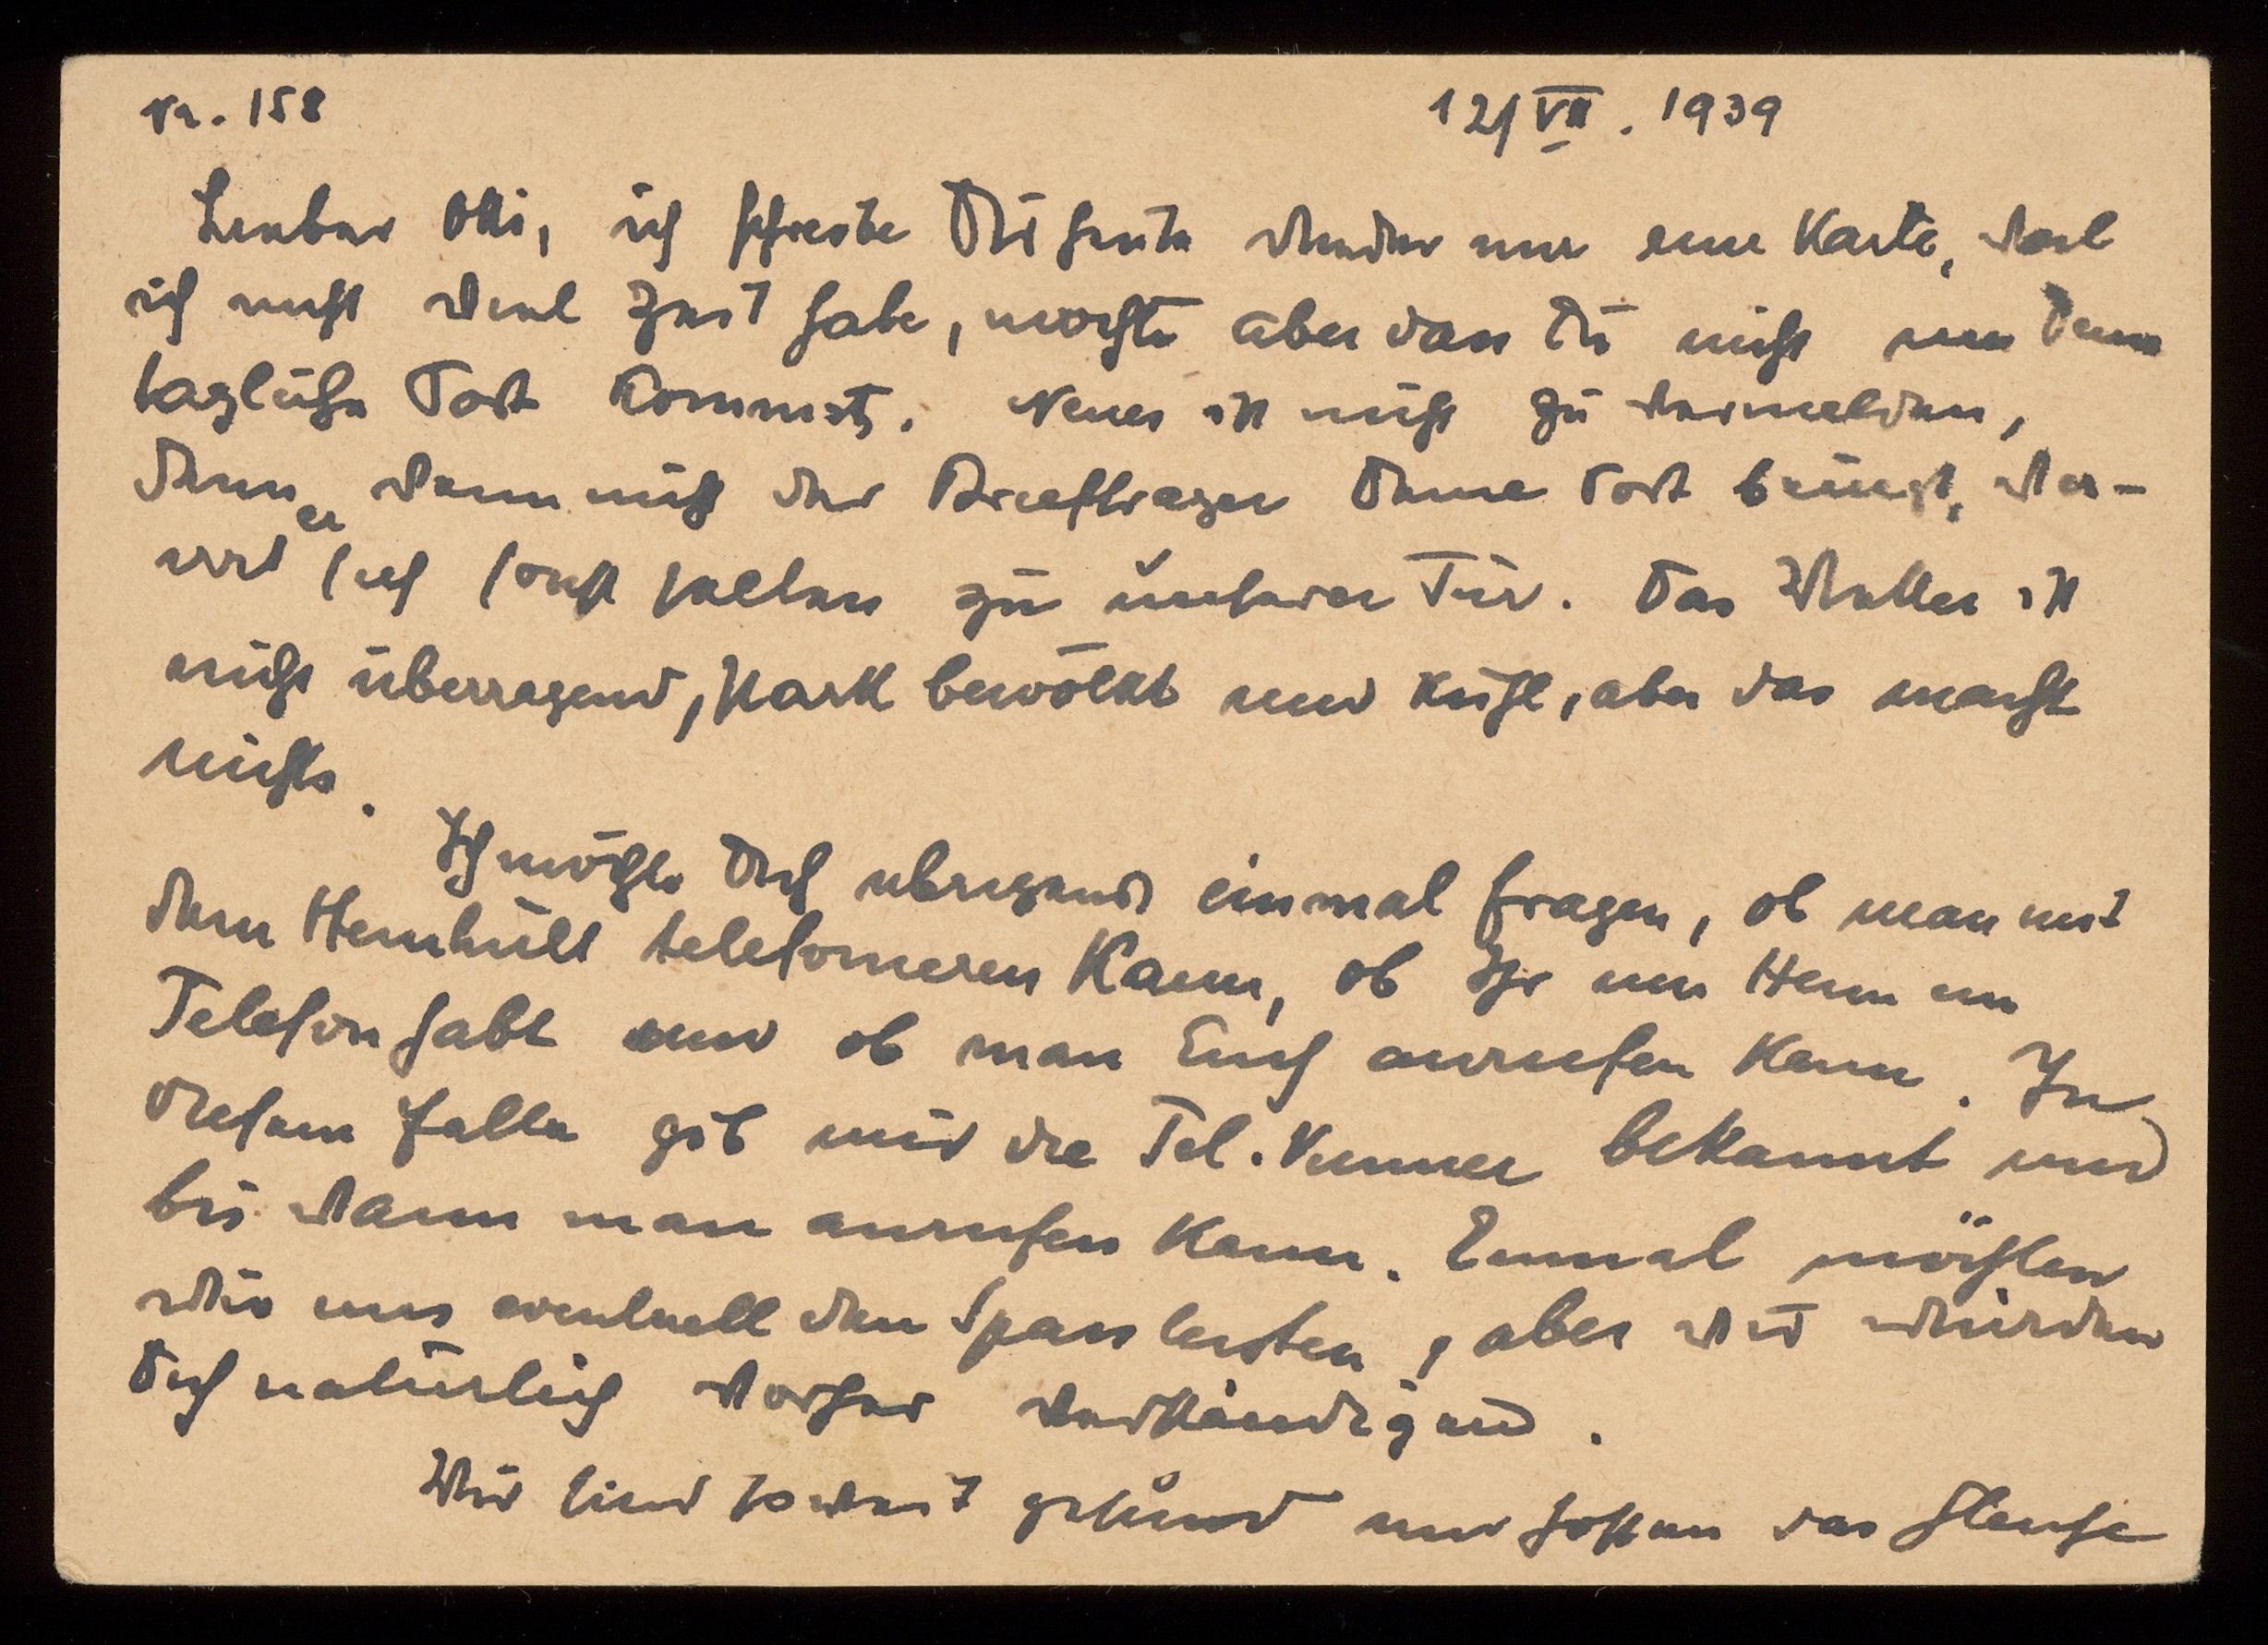 Nr. 158 12/VII. 1939
Lieber Otti, ich schreibe Dir heute wieder nur eine Karte, weil
ich nicht viel Zeit habe, mochte aber dass Du nicht um Deine
tagliche Post kommst. Neues ist nicht zu vermelden,
denn wenn nicht der Brieftrager Deine Post bringt, ver-
irrt er sich sonst selten zu unserer Tür. Das Wetter ist
nicht überragend, stark bewölkt und kühl, aber das macht
nichts.
Ich möchte Dich ubrigens einmal fragen, ob man mit
dem telefonieren kann, ob Ihr im Heim ein
Telefon habt und ob man Euch anrufen kann. In
diesem Falle gib mir die Tel. Nummer bekannt und
bis wann man anrufen kann. Einmal möchten
wir uns eventuell den Spass leisten, aber wir würden
Dich natürlich vorher verständigen.
Wir sind soweit gesund und hoffen das Gleiche